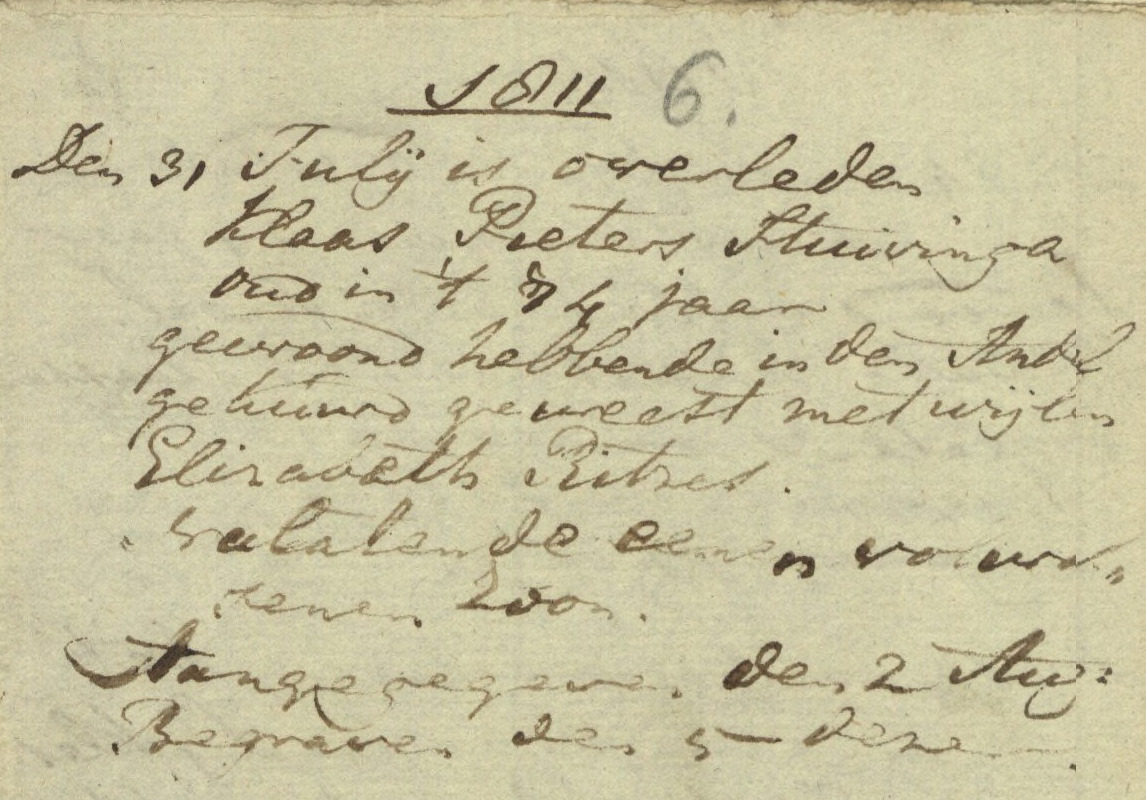 1811 6.
Den 31 Julij is overleden
Klaas Pieters Stuivinga
oud in 't 74 jaar
gewoond hebbende in den Andel
gehuwd geweest met wijlen
Elizabeth Ritzes.
nalatende eenen volwas„
senen Zoon.
Aangegegeven den 2 Aug:
Begraven den 5 dezer